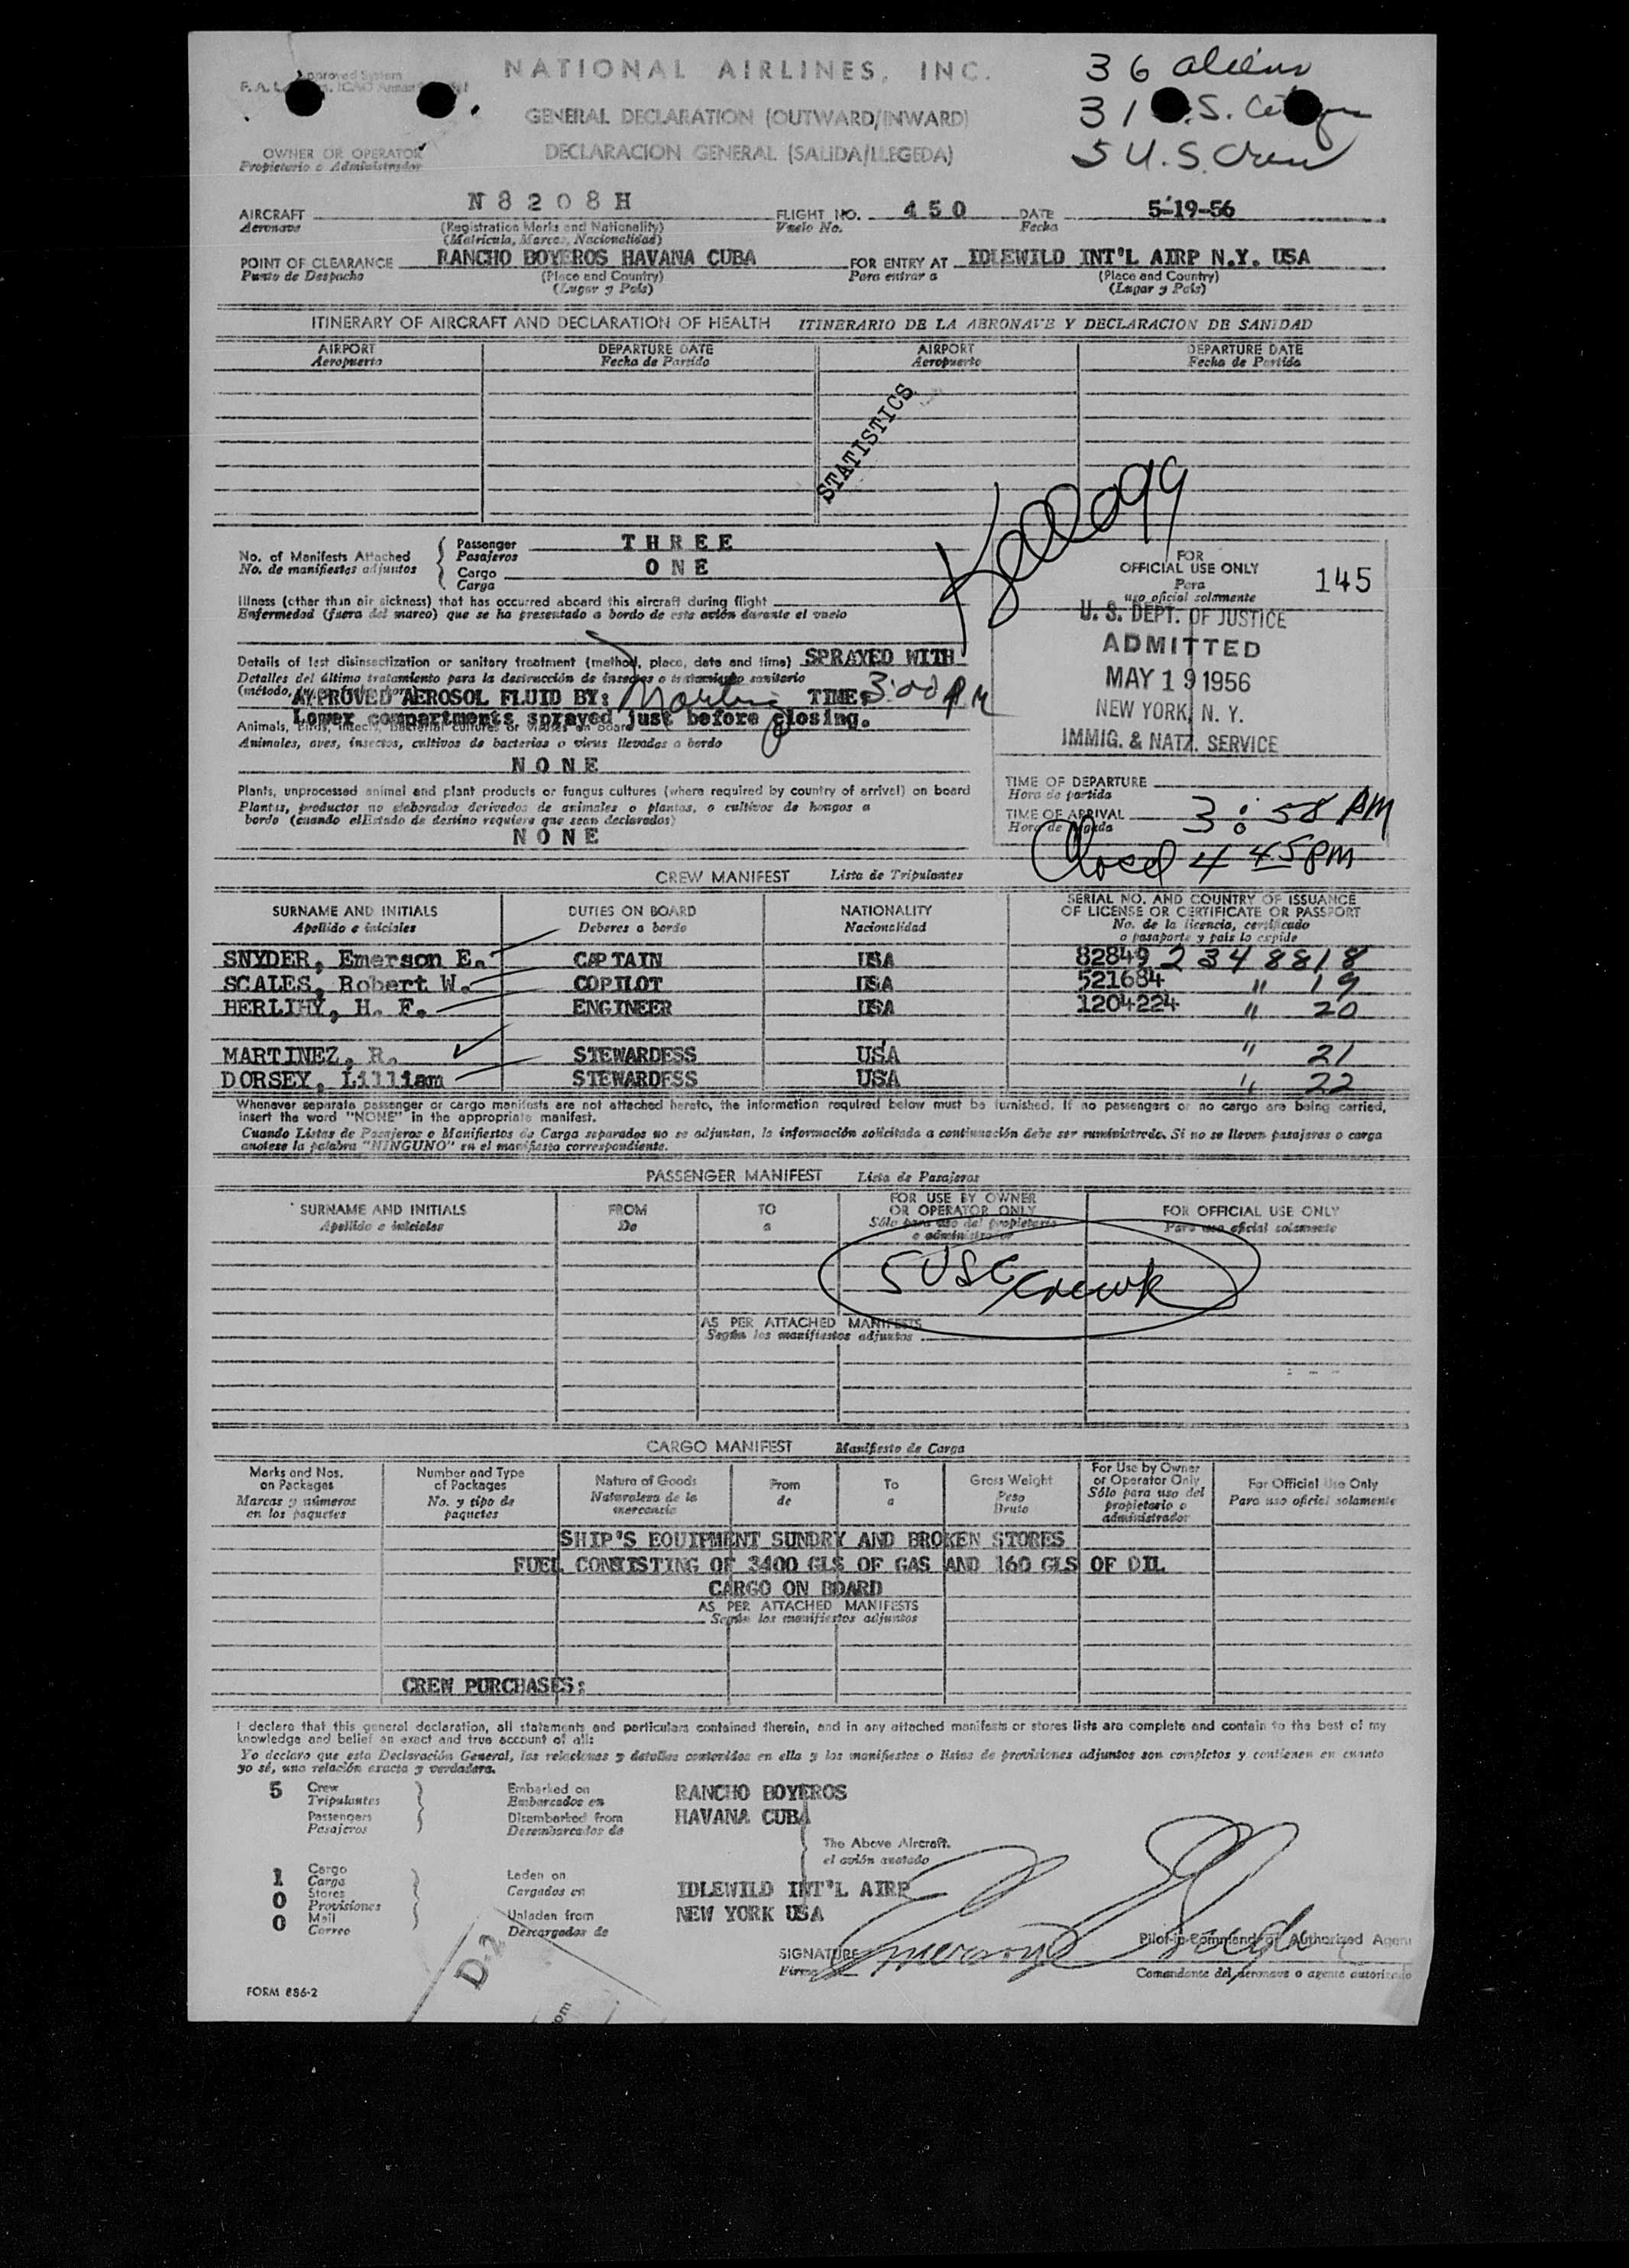 NATIONAL AIRLINES, INC.
36 aliens
31 U.S. Citizen
5 U.S Crew
GENERAL DECLARATION (OUTWARD/INWARD)
DECLARACION GENERAL (SALIDA/LLEGEDA)
OWNER OR OPERATOR
Propietario o Administrador
AIRCRAFT N8208H FLIGHT NO. 450 DATE 5-19-56
Aeronave (Registration Marks and Nationality) Vuelo No. Fecha
(Matricula, Marcas, Nacionalidad)
POINT OF CLEARANCE RANCHO BOYEROS HAVANA CUBA FOR ENTRY AT IDLEWILD INT'L AIRP N.Y. USA
Punto de Despacho (Place and Country) Para entrar a (Place and Country)
(Lugar y Pais) (Lugar y Pais)
ITINERARY OF AIRCRAFT AND DECLARATION OF HEALTH ITINERARIO DE LA ABRONAVE Y DECLARACION DE SANIDAD
AIRPORT DEPARTURE DATE AIRPORT DEPARTURE DATE
Aeropuerto Fecha de Partida Aeropuerto Fecha de Partida
STATISTICS
Kellogg
No. of Manifests Attached Passenger THREE
No. de manifiestos adjuntos Pasajeros
Cargo ONE
Carga
FOR
OFFICIAL USE ONLY 145
Para
uso oficial solamente
U. S. DEPT. OF JUSTICE
ADMITTED
MAY 19 1956
NEW YORK, N. Y.
IMMIG. & NATZ. SERVICE
Illness (other than air sickness) that has occurred aboard this aircraft during flight
Enfermedad (fuera del mareo) que se ha presentado a bordo de este avión durante el vuelo
Details of last disinsectization or sanitary treatment (method, place, date and time) SPRAYED WITH
Detalles del último tratamiento para la destrucción de insectos o tratamiento sanitario
(método,
APPROVED AEROSOL FLUID BY: Martinez TIME: 3:00 PM
Lower compartments sprayed just before closing.
Animals, birds, insects, bacterial cultures or viruses on board
Animales, aves, insectos, cultivos de bacterias o virus llevados a bordo
NONE
Plants, unprocessed animal and plant products or fungus cultures (where required by country of arrival) on board
Plantas, productos no elaborados derivados de animales o plantas, o cultivos de hongos a
bordo (cuando elEstado de destino requiere que sean declarados)
NONE
TIME OF DEPARTURE
Hora de partida
TIME OF ARRIVAL 3:58 PM
Hora de llegada
Closed 4 45 PM
CREW MANIFEST Lista de Tripulantes
SURNAME AND INITIALS DUTIES ON BOARD NATIONALITY SERIAL NO. AND COUNTRY OF ISSUANCE
OF LICENSE OR CERTIFICATE OR PASSPORT
Apellido e iniciales Deberes a bordo Nacionalidad No. de la licencia, certificado
o pasaporte y pais lo expide
SNYDER, Emerson E. CAPTAIN USA 82849 2348818
SCALES, Robert W. COPILOT USA 521684 " 19
HERLIHY, H. F. ENGINEER USA 1204224 " 20
MARTINEZ, R. STEWARDESS USA " 21
DORSEY, Lilliam STEWARDESS USA " 22
Whenever separate passenger or cargo manifests are not attached hereto, the information required below must be furnished. If no passengers or no cargo are being carried,
insert the word "NONE" in the appropriate manifest.
Cuando Listas de Pasajeros o Manifiestos de Carga separados no se adjuntan, la información solicitada a continuación debe ser suministrada. Si no se llevan pasajeros o carga
anotese la palabra "NINGUNO" en el manifiesto correspondiente.
PASSENGER MANIFEST Lista de Pasajeros
SURNAME AND INITIALS FROM TO FOR USE BY OWNER
OR OPERATOR ONLY FOR OFFICIAL USE ONLY
Apellido e iniciales De a Sólo para uso del propietario
o administrador Para uso oficial solamente
5 USC
AS PER ATTACHED MANIFESTS
Según los manifiestos adjuntos
CARGO MANIFEST Manifiesto de Carga
Marks and Nos.
on Packages
Marcas y números
en los paquetes
Number and Type
of Packages
No. y tipo de
paquetes
Nature of Goods
Naturaleza de la
mercancia
From
de
To
a
Gross Weight
Peso
Bruto
For Use by Owner
or Operator Only
Sólo para uso del
propietario o
administrador
For Official Use Only
Para uso oficial solamente
SHIP'S EQUIPMENT SUNDRY AND BROKEN STORES
FUEL CONSISTING OF 3400 GLS OF GAS AND 160 GLS OF OIL
CARGO ON BOARD
AS PER ATTACHED MANIFESTS
Según los manifiestos adjuntos
CREW PURCHASES:
I declare that this general declaration, all statements and particulars contained therein, and in any attached manifests or stores lists are complete and contain to the best of my
knowledge and belief an exact and true account of all:
Yo declaro que esta Declaración General, las relaciones y detalles contenidos en ella y los manifiestos o listas de provisiones adjuntos son completos y contienen en cuanto
yo sé, una relación exacta y verdadera.
5 Crew Embarked on RANCHO BOYEROS
Tripulantes Embarcados en
Passengers Disembarked from HAVANA CUBA
Pasajeros Desembarcados de
The Above Aircraft.
el avión anotado
1 Cargo Laden on IDLEWILD INT'L AIRP
Carga Cargados en
0 Stores
Provisiones
0 Mail Unladen from NEW YORK USA
Correo Descargados de
SIGNATURE Emerson E Snyder Pilot-in-Command or Authorized Agent
Firma Comandante del aeronave o agente autorizado
D-2
FORM 886-2